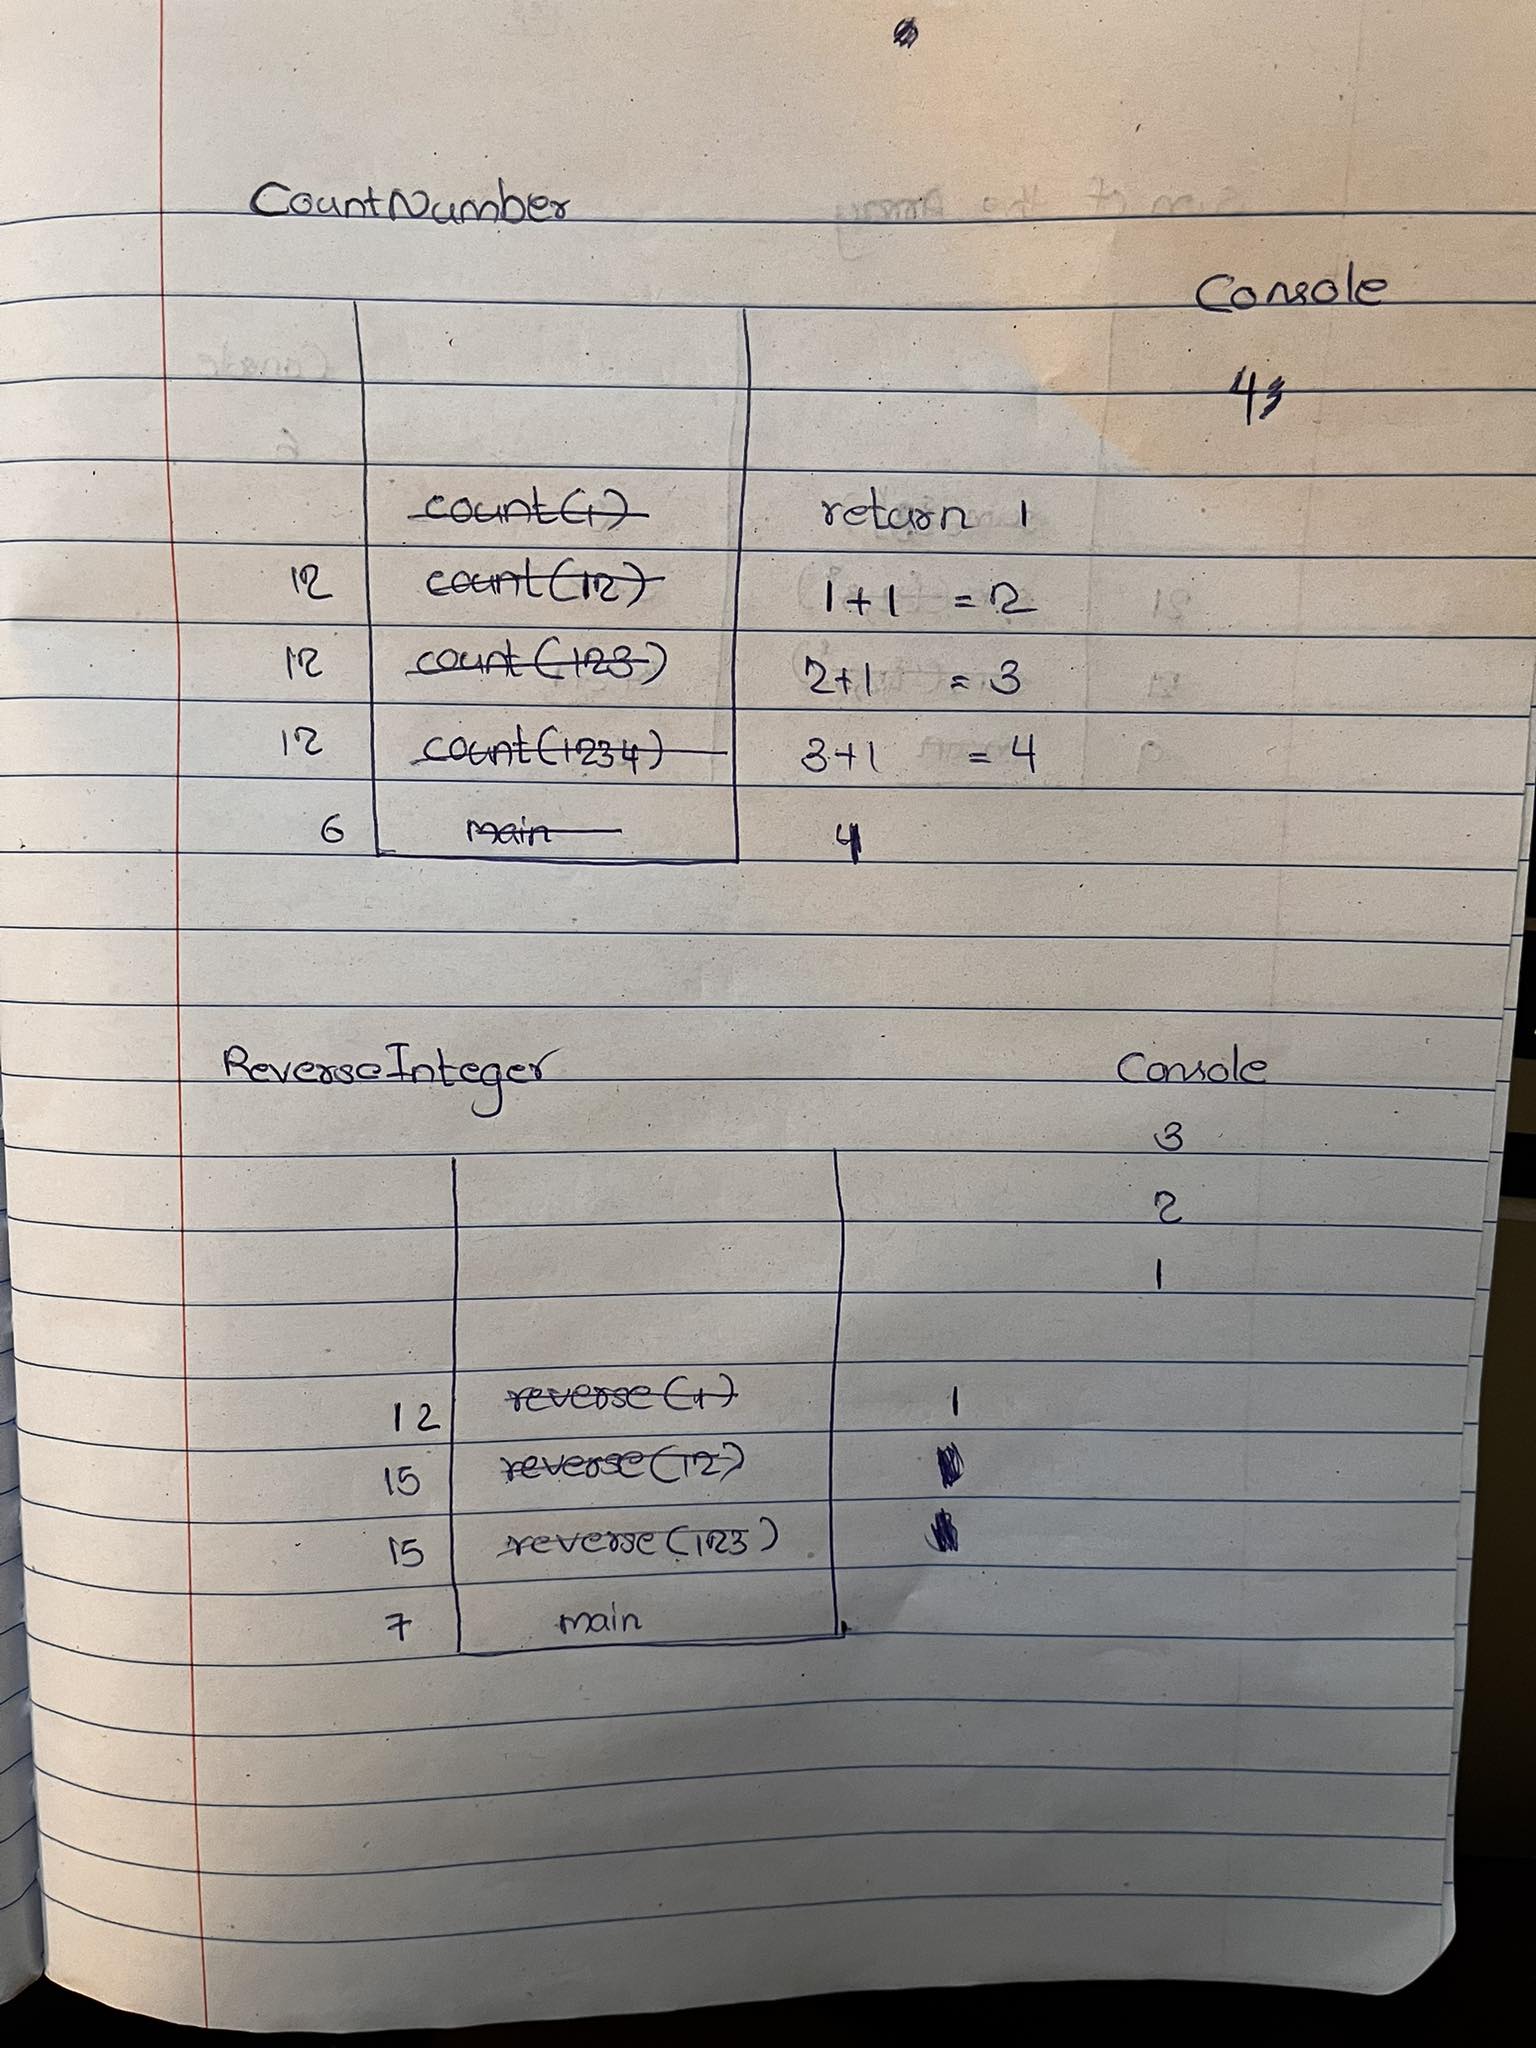 CountNumber
Console
4
count(1) return 1
12 count(12) 1+1 = 2
12 count(123) 2+1 = 3
12 count(1234) 3+1 = 4
6 main 4
ReverseInteger Console
3
2
1
12 reverse(1) 1
15 reverse(12)
15 reverse(123)
7 main